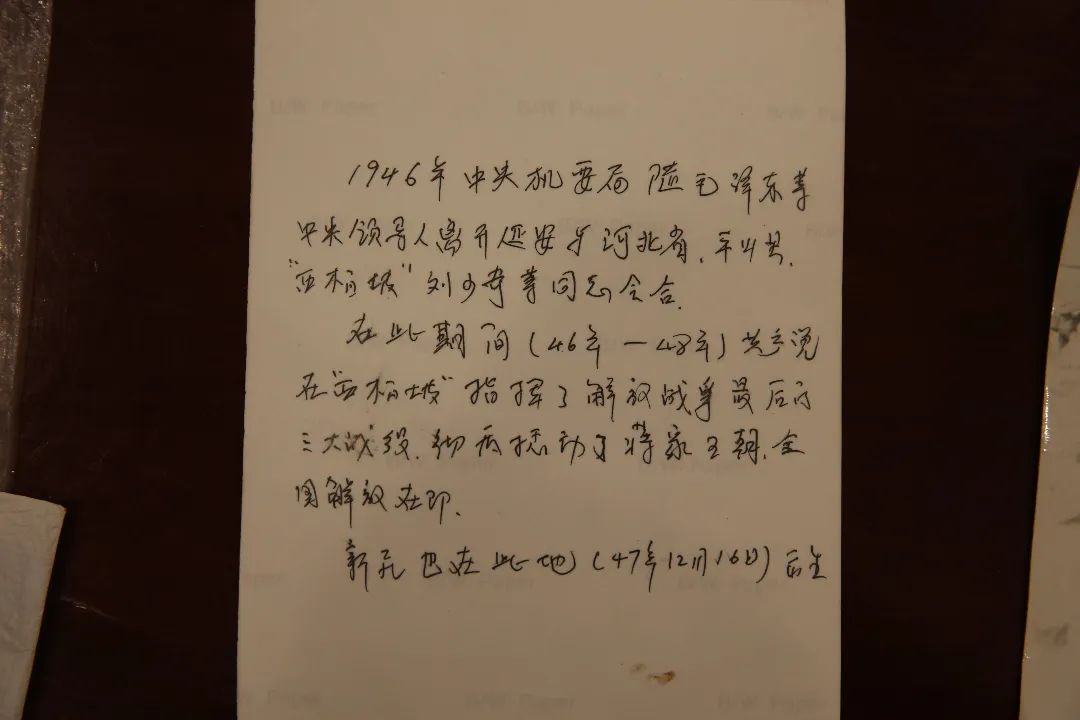 1946年中央机要局随毛泽东等
中央领导人离开延安于河北省、平山县、
"西柏坡"刘少奇等同志会合.
在此期间(46年—48年)共产党
在"西柏坡"指挥了解放战争最后的
三大战役.彻底摇动了蒋家王朝.全
国解放在即.
新 也在此地(47年12月16日)
B/W Paper
B/W Paper